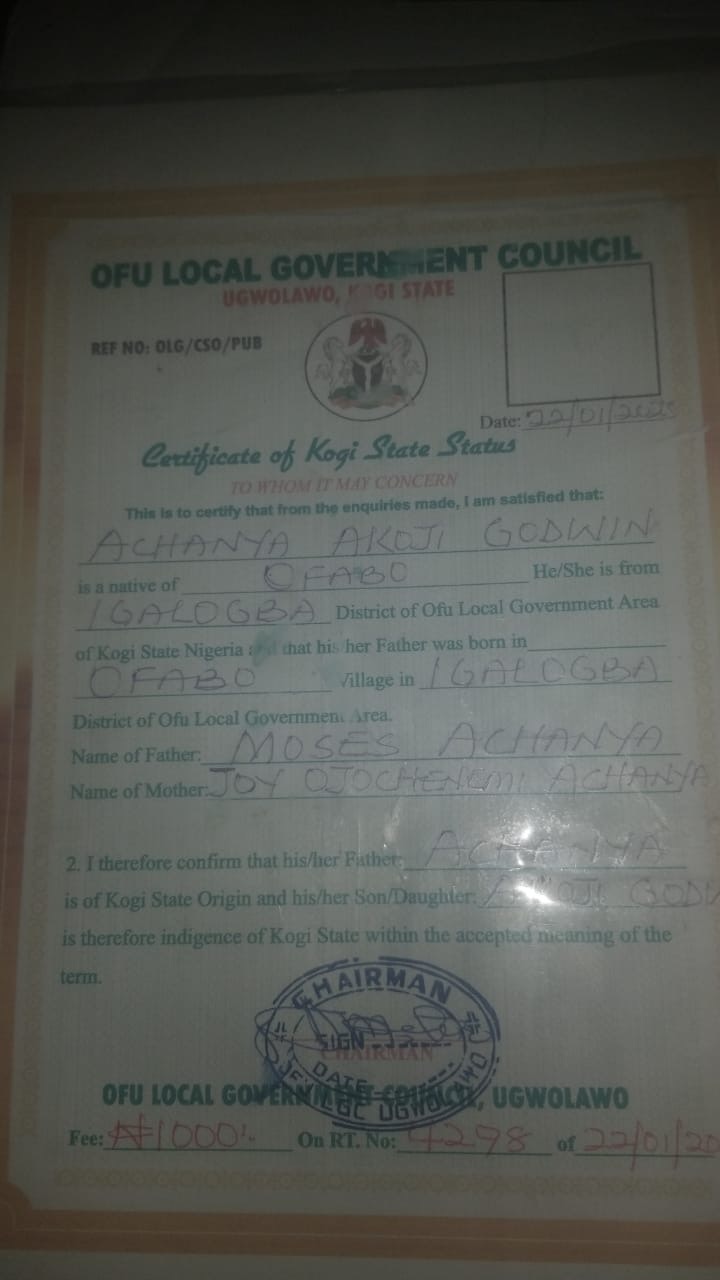 OFU LOCAL GOVERNMENT COUNCIL
UGWOLAWO, KOGI STATE
REF NO: OLG/CSO/PUB
Date: 22/01/2025
Certificate of Kogi State Status
TO WHOM IT MAY CONCERN
This is to certify that from the enquiries made, I am satisfied that:
ACHANYA AKOJI GODWIN
is a native of OFABO He/She is from
IGALOGBA District of Ofu Local Government Area
of Kogi State Nigeria and that his her Father was born in
OFABO Village in IGALOGBA
District of Ofu Local Government Area.
Name of Father: MOSES ACHANYA
Name of Mother: JOY OJOCHENEMI ACHANYA
2. I therefore confirm that his/her Father: ACHANYA
is of Kogi State Origin and his/her Son/Daughter: AKOJI GODW
is therefore indigence of Kogi State within the accepted meaning of the
term.
CHAIRMAN
SIGN
CHAIRMAN
DATE
LGC UGWOLAWO
OFU LOCAL GOVERNMENT COUNCIL, UGWOLAWO
Fee: ₦1000 On RT. No: 4298 of 22/01/20